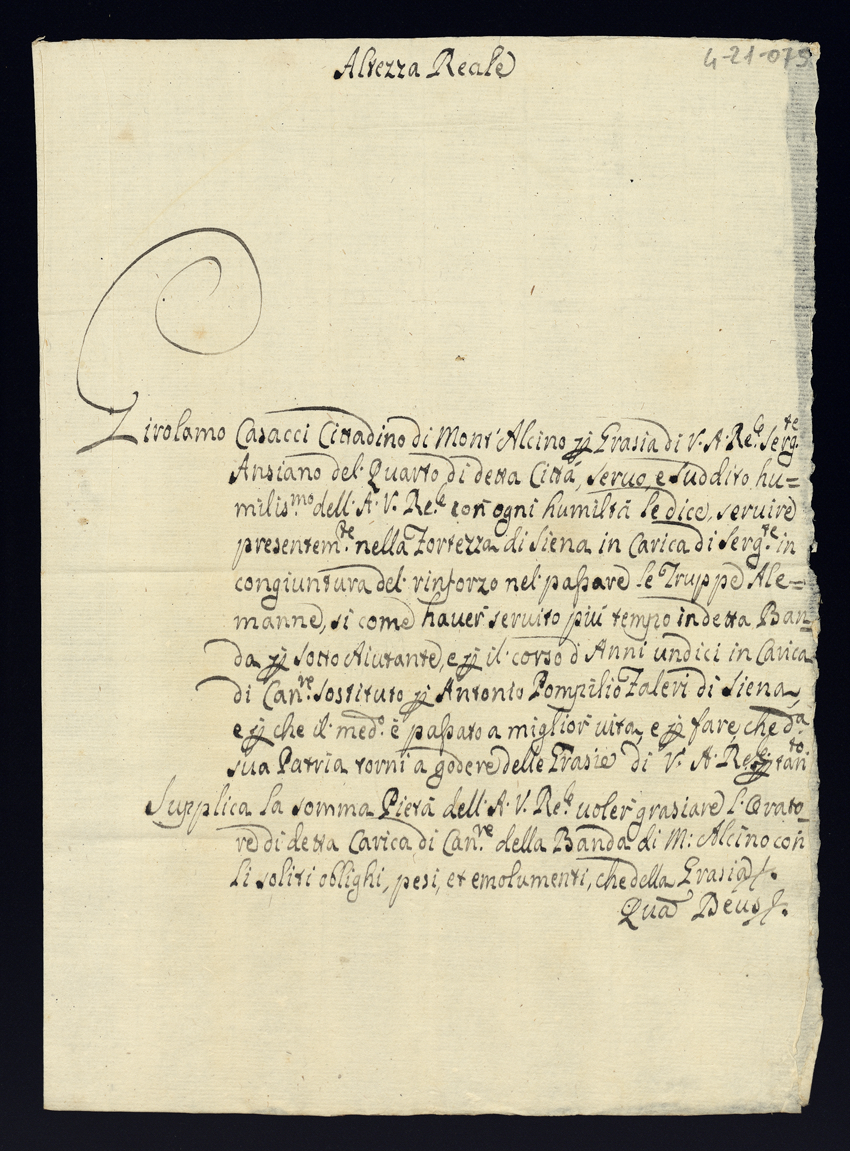 Altezza Reale
4-21-075
Girolamo Casacci Cittadino di Mont'Alcino p Grasia di V. A. Re.le Serg.te
Ansiano del Quarto di detta Città, seruo, e suddito hu=
milis.mo dell'A. V. Re.le con ogni humiltà le dice, seruire
presentem.te nella Fortezza di Siena in Carica di Serg.te in
congiuntura del rinforzo nel passare le Truppe Ale=
manne, si come hauer seruito più tempo in detta Ban=
da p sotto Aiutante, e p il corso d'Anni undici in Carica
di Can.re sostituto p Antonio Pompilio Faleri di Siena,
e p che il med.o è passato a miglior uita, e p fare, che d.a
sua Patria torni a godere delle Grasie di V. A. Re.le p tan.to
Supplica la somma Pietà dell'A. V. Re.le uoler grasiare l'Orato=
re di detta Carica di Can.re della Banda di M: Alcino con
li soliti oblighi, pesi, et emolumenti, che della Grasia
Qua Deus